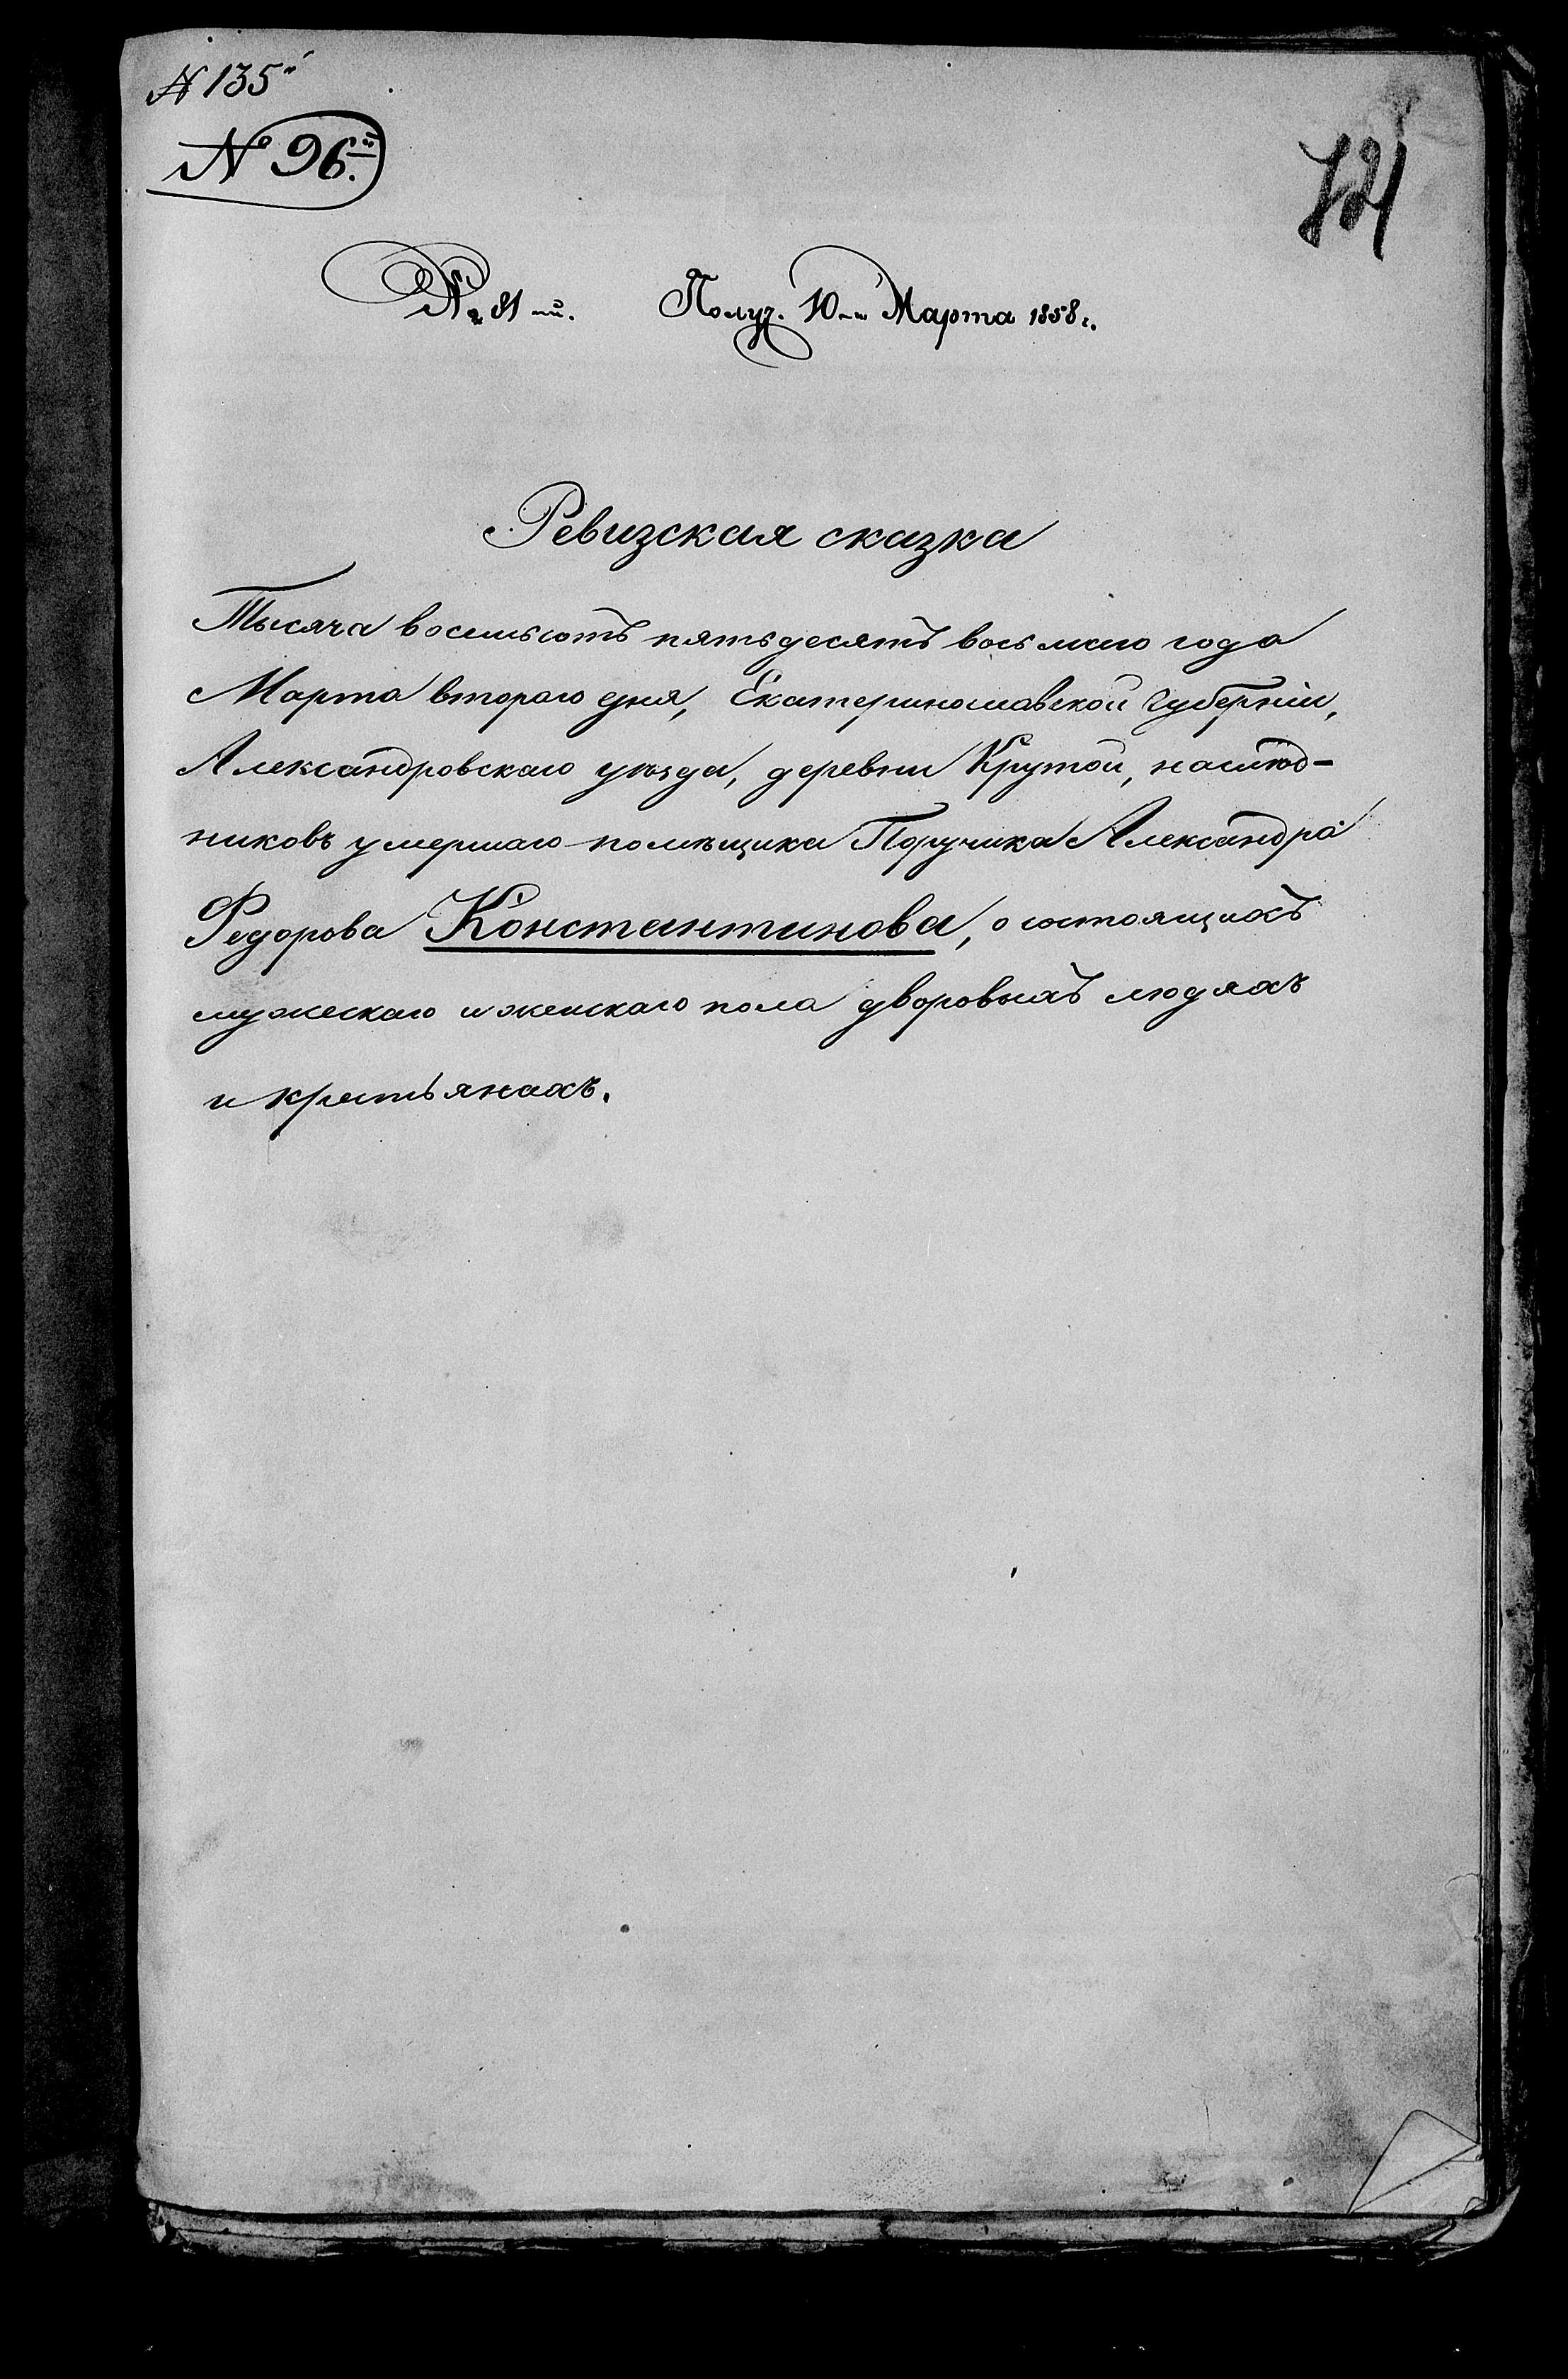 № 135й
№ 96.й
721
№ 81-й. Получ. 10-го Марта 1858 г.
Ревизская сказка
Тысяча восемьсотъ пятьдесятъ восьмаго года
Марта втораго дня, Екатеринославской Губерніи,
Александровскаго уѣзда, деревни Крутой, наслѣд-
никовъ умершаго помѣщика Поручика Александра
Федорова Константинова, о состоящихъ
мужескаго и женскаго пола дворовыхъ людяхъ
и крестьянахъ.